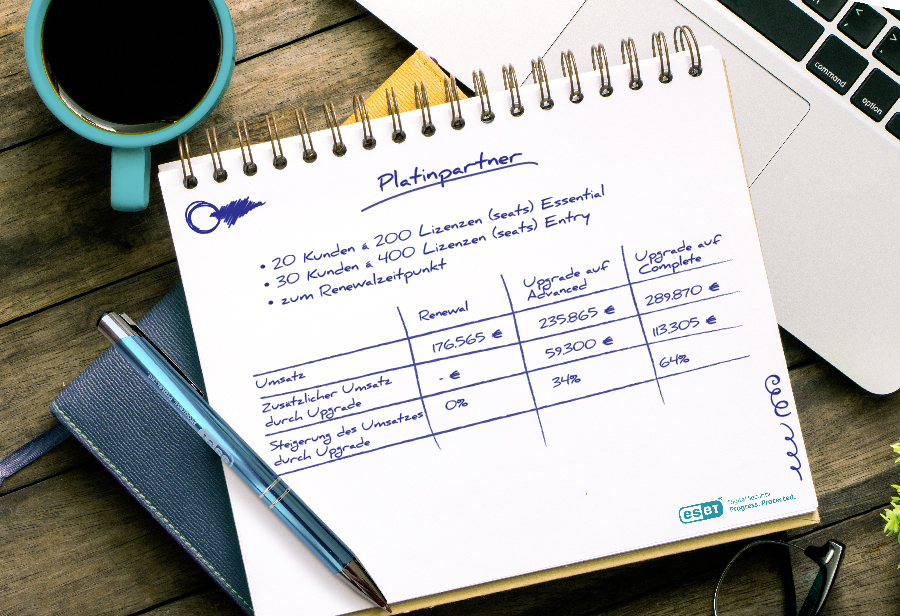 command
option
<
>
Platinpartner
• 20 Kunden à 200 Lizenzen (seats) Essential
• 30 Kunden à 400 Lizenzen (seats) Entry
• zum Renewalzeitpunkt
Renewal
Upgrade auf
Advanced
Upgrade auf
Complete
Umsatz
176.565 €
235.865 €
289.870 €
Zusätzlicher Umsatz
durch Upgrade
- €
59.300 €
113.305 €
Steigerung des Umsatzes
durch Upgrade
0%
34%
64%
eseT
Digital Security
Progress. Protected.